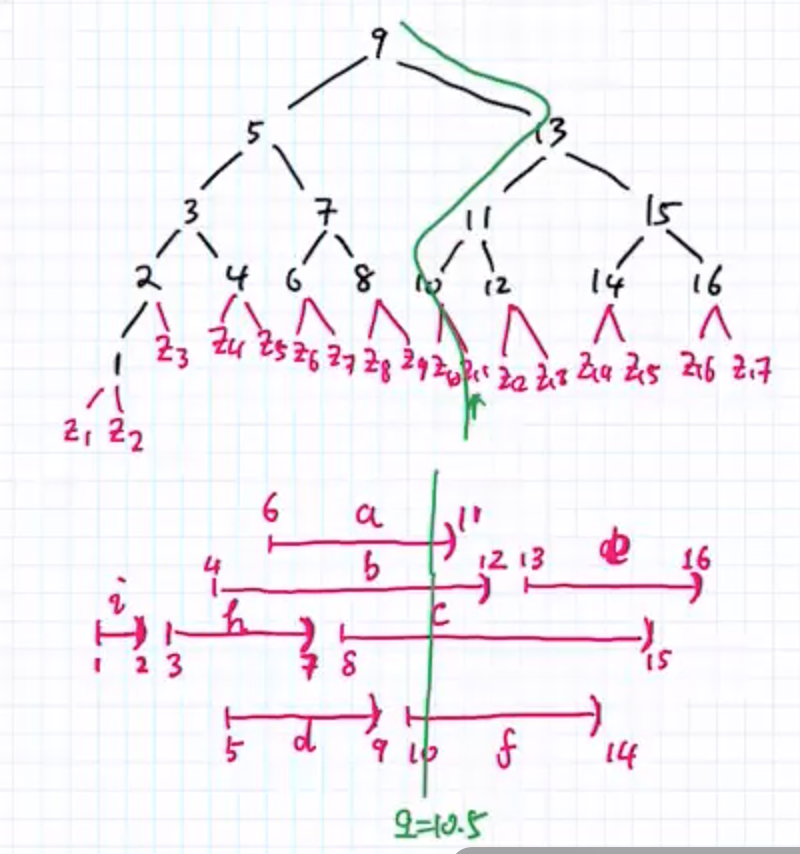 9
5 13
3 7 11 15
2 4 6 8 10 12 14 16
1 z3 z4 z5 z6 z7 z8 z9 z10 z11 z12 z13 z14 z15 z16 z17
z1 z2
6 a 11
4 b 12 13 16
i h c
1 2 3 7 8 15
5 d 9 10 f 14
q=10.5